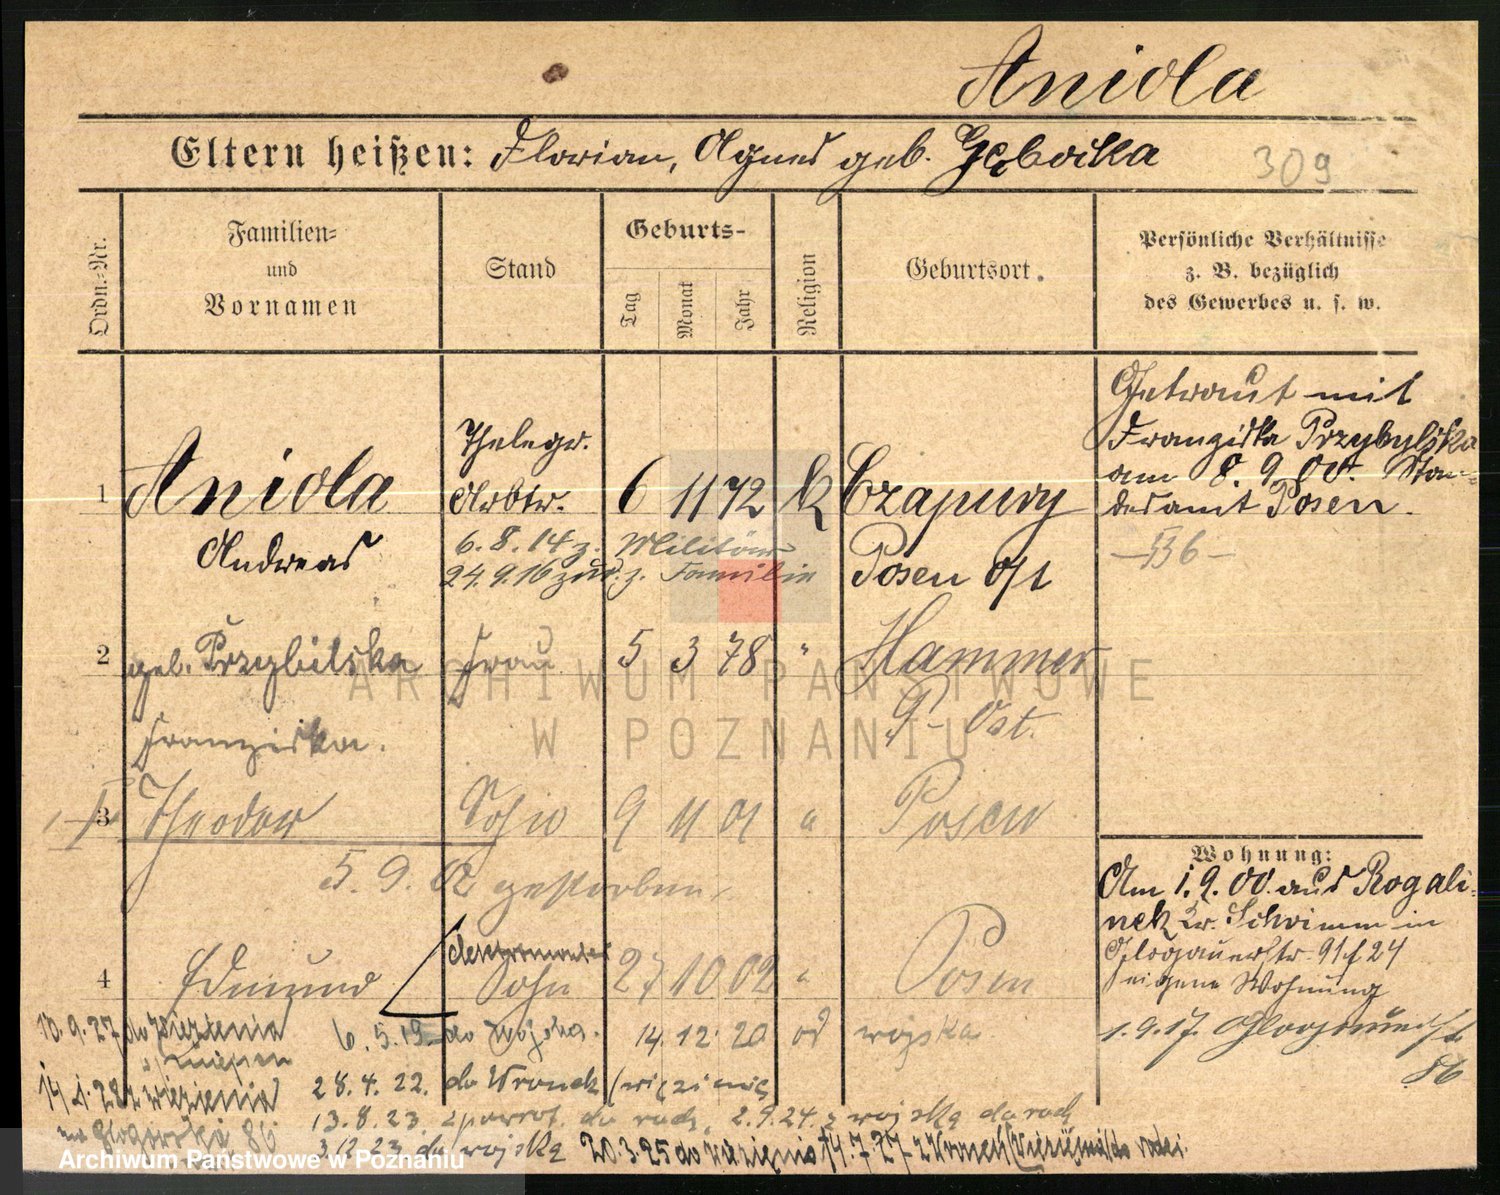 Aniola
Eltern heißen: Florian, Agnes geb. Gębocka
309
Ordn.-Nr.
Familien-
und
Vornamen
Stand
Geburts-
Tag
Monat
Jahr
Religion
Geburtsort.
Persönliche Verhältnisse
z. B. bezüglich
des Gewerbes u. s. w.
1 Aniola
Andreas
Thelegr.
Arbtr.
6 11 72 k Czapury
Posen Ost
6.8.14 z. Militär
24.9.16 zur. z. Familie
Getraut mit
Franziska Przybylska
am 8.9.00. Stan-
desamt Posen.
— 536 —
2 geb. Przybilska Frau 5 3 78 " Hammer
Franziska. P. Ost.
3 Theodor Sohn 9 11 01 " Posen
5.9.02 gestorben
4 Edmund Sohn 27 10 02 " Posen
Wohnung:
Am 1.9.00. aus Rogali-
nek Kr. Schrimm in
Glogauerstr. 91 f 24
eigene Wohnung
1.9.17. Glogauerstr.
86
10.9.27 do Więzienia
6.5.19 do wojska. 14 12 20 od wojska
14.1.28 z więzienia
na Głogowską 86
28.4.22. do Wronek (więzienie
13.8.23. zpowrot. do rodz. 2.9.24. z wojska do rodz
3.12.23 do wojska 20.3.25 do więzienia 14.7.27 z Wronek (Więzienia) do rodzi.
ARCHIWUM PAŃSTWOWE
W POZNANIU
Archiwum Państwowe w Poznaniu